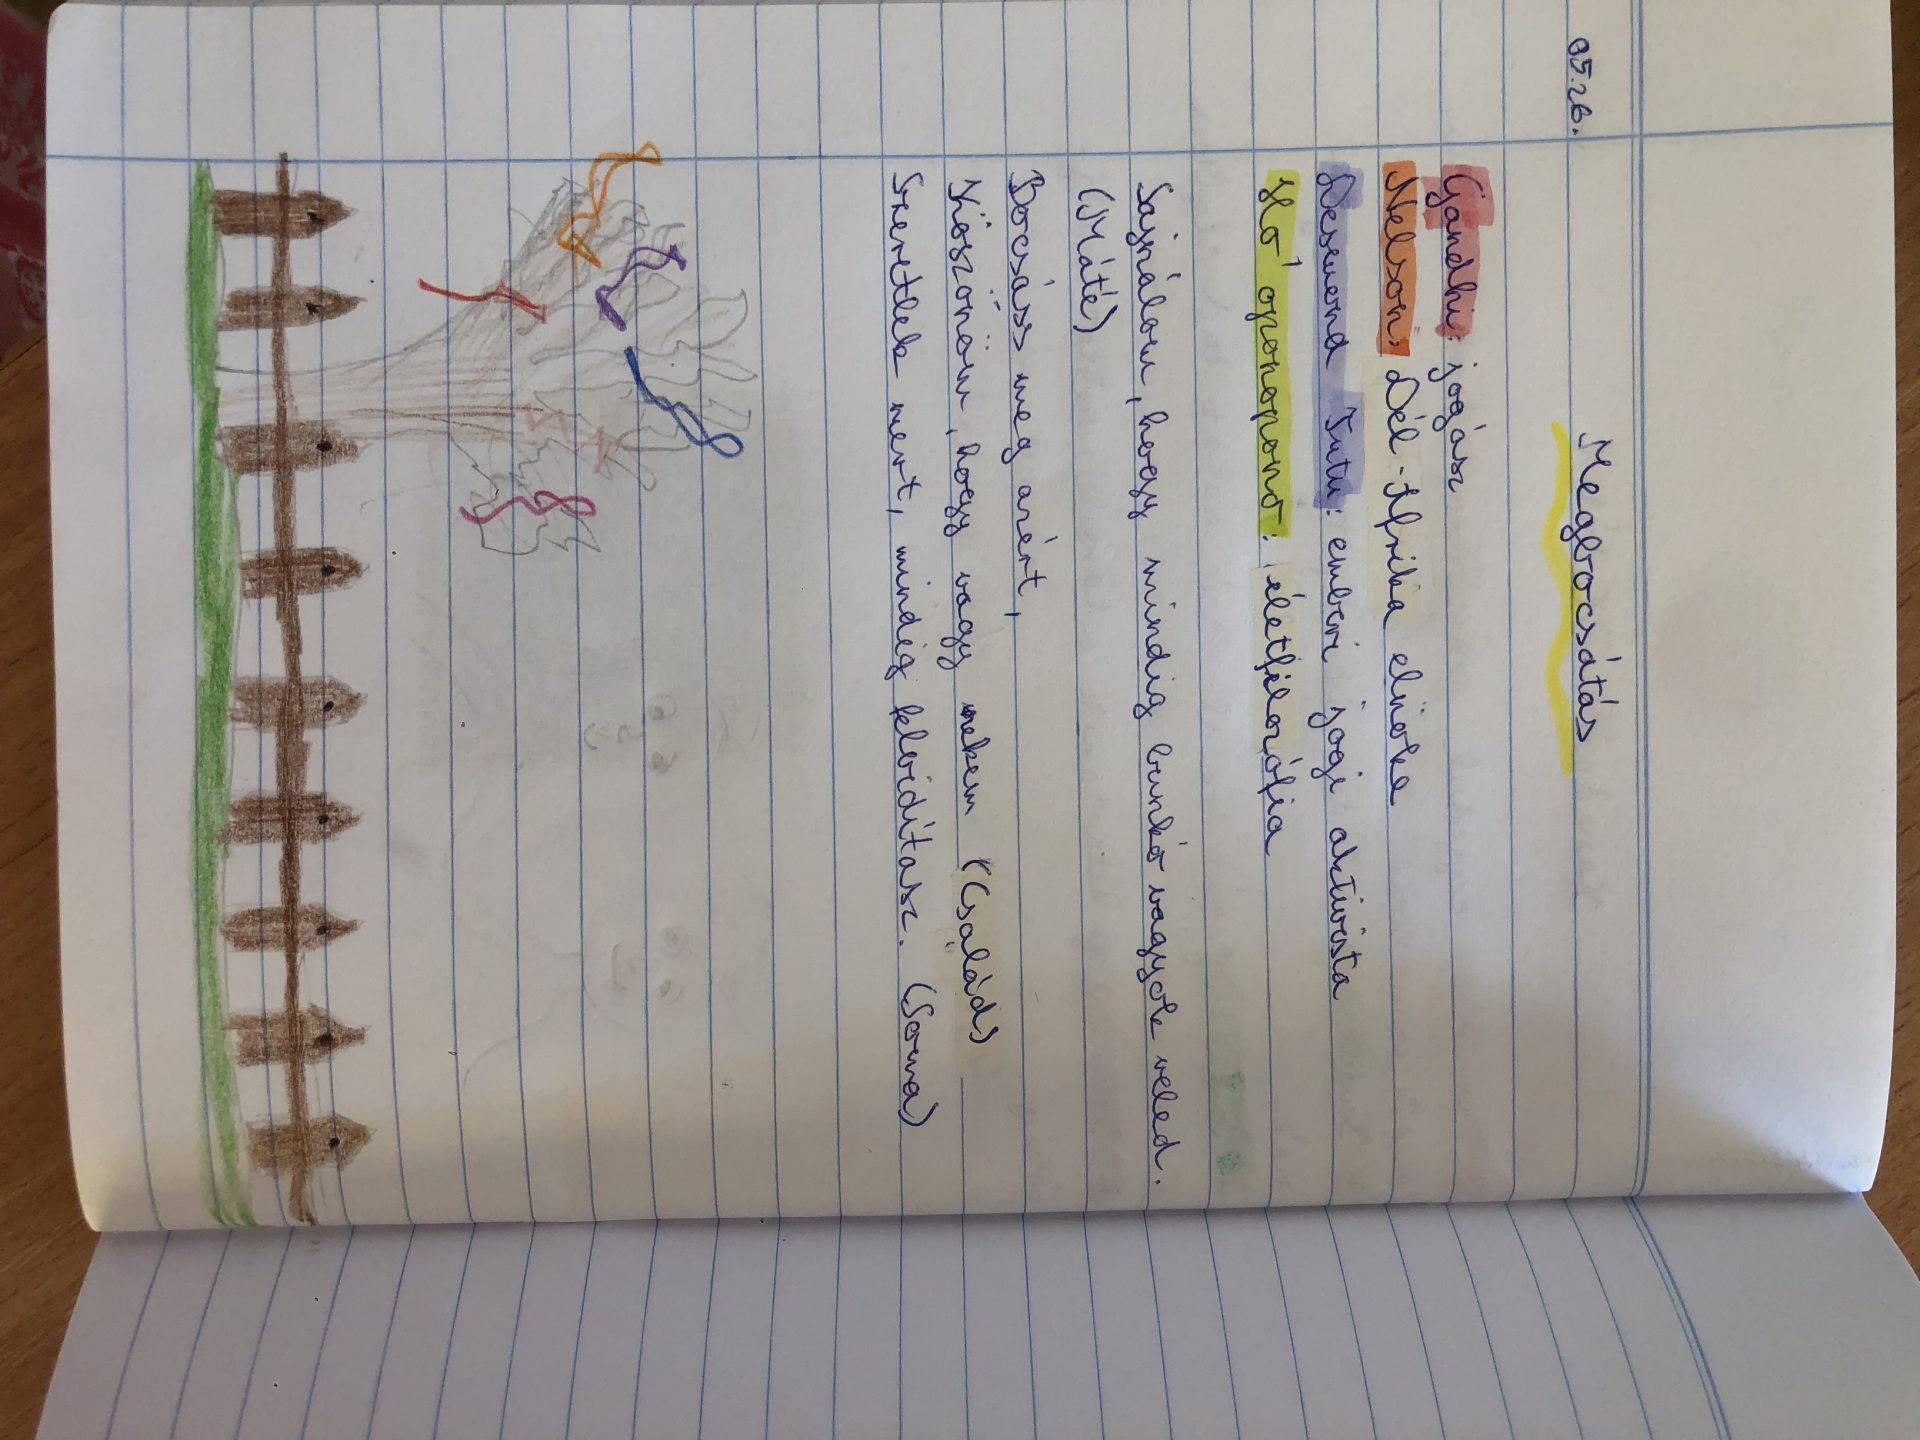 05.26.
Megbocsátás
Gandhi: jogász
Nelson: Dél-Afrika elnöke
Desmond Tutu: emberi jogi aktivista
Hó oponopono: életfélozófia
Sajnálom, hogy mindig bunkó vagyok veled.
(Máté)
Bocsáss meg azért,
Köszönöm, hogy vagy nekem (Család)
Szeretlek mert, mindig felvidítasz. (Soma)